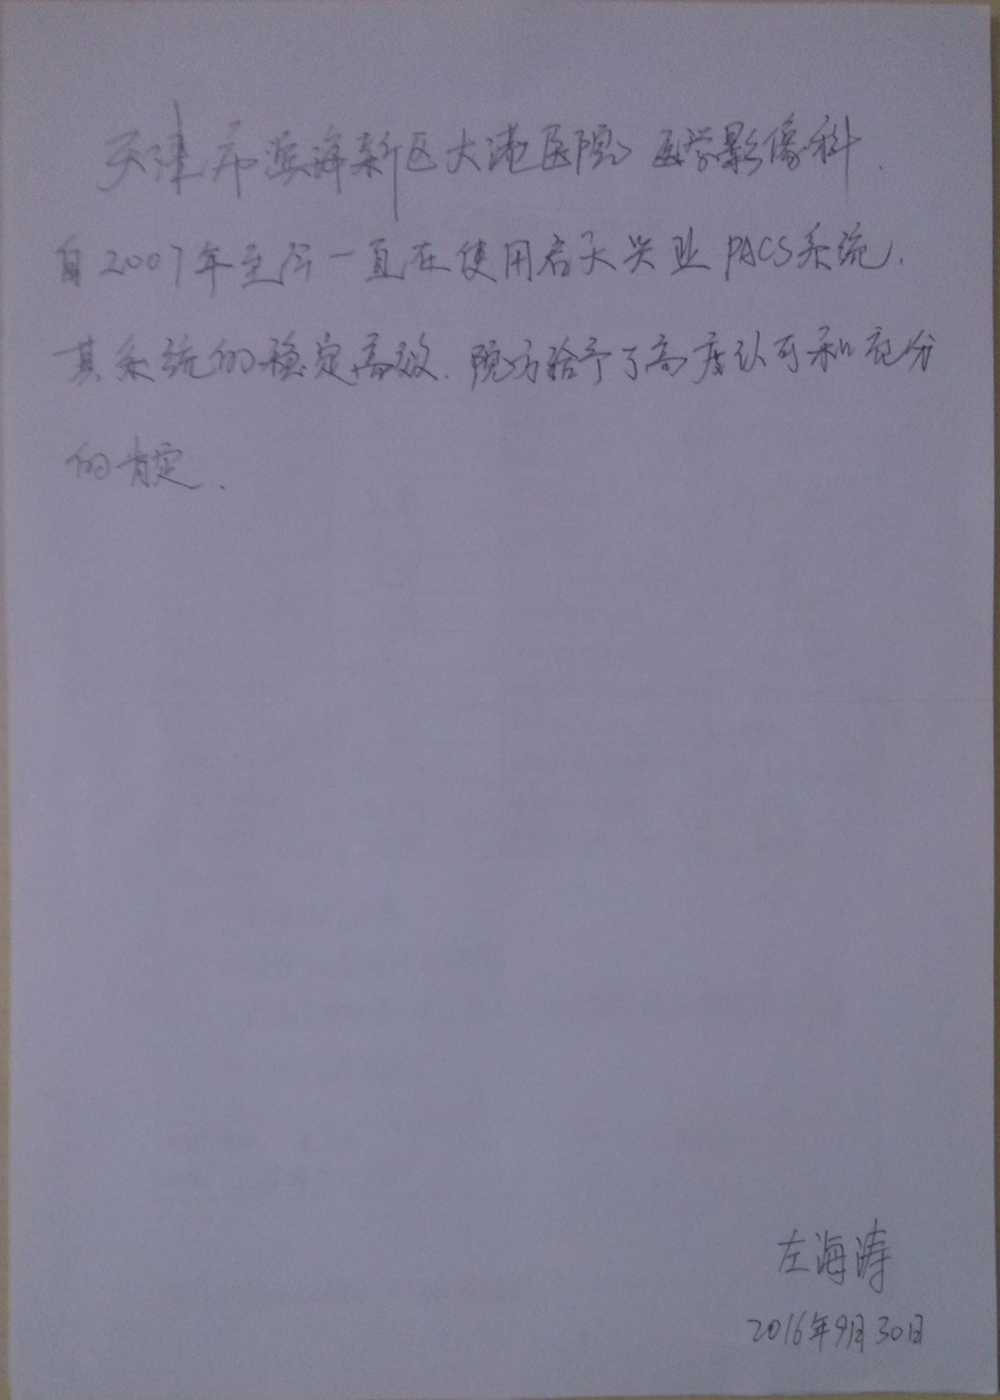 天津市滨海新区大港医院医学影像科.
自2007年至今一直在使用启天兴业PACS系统.
其系统的稳定高效.院方给予了高度认可和充分
的肯定.
左海涛
2016年9月30日